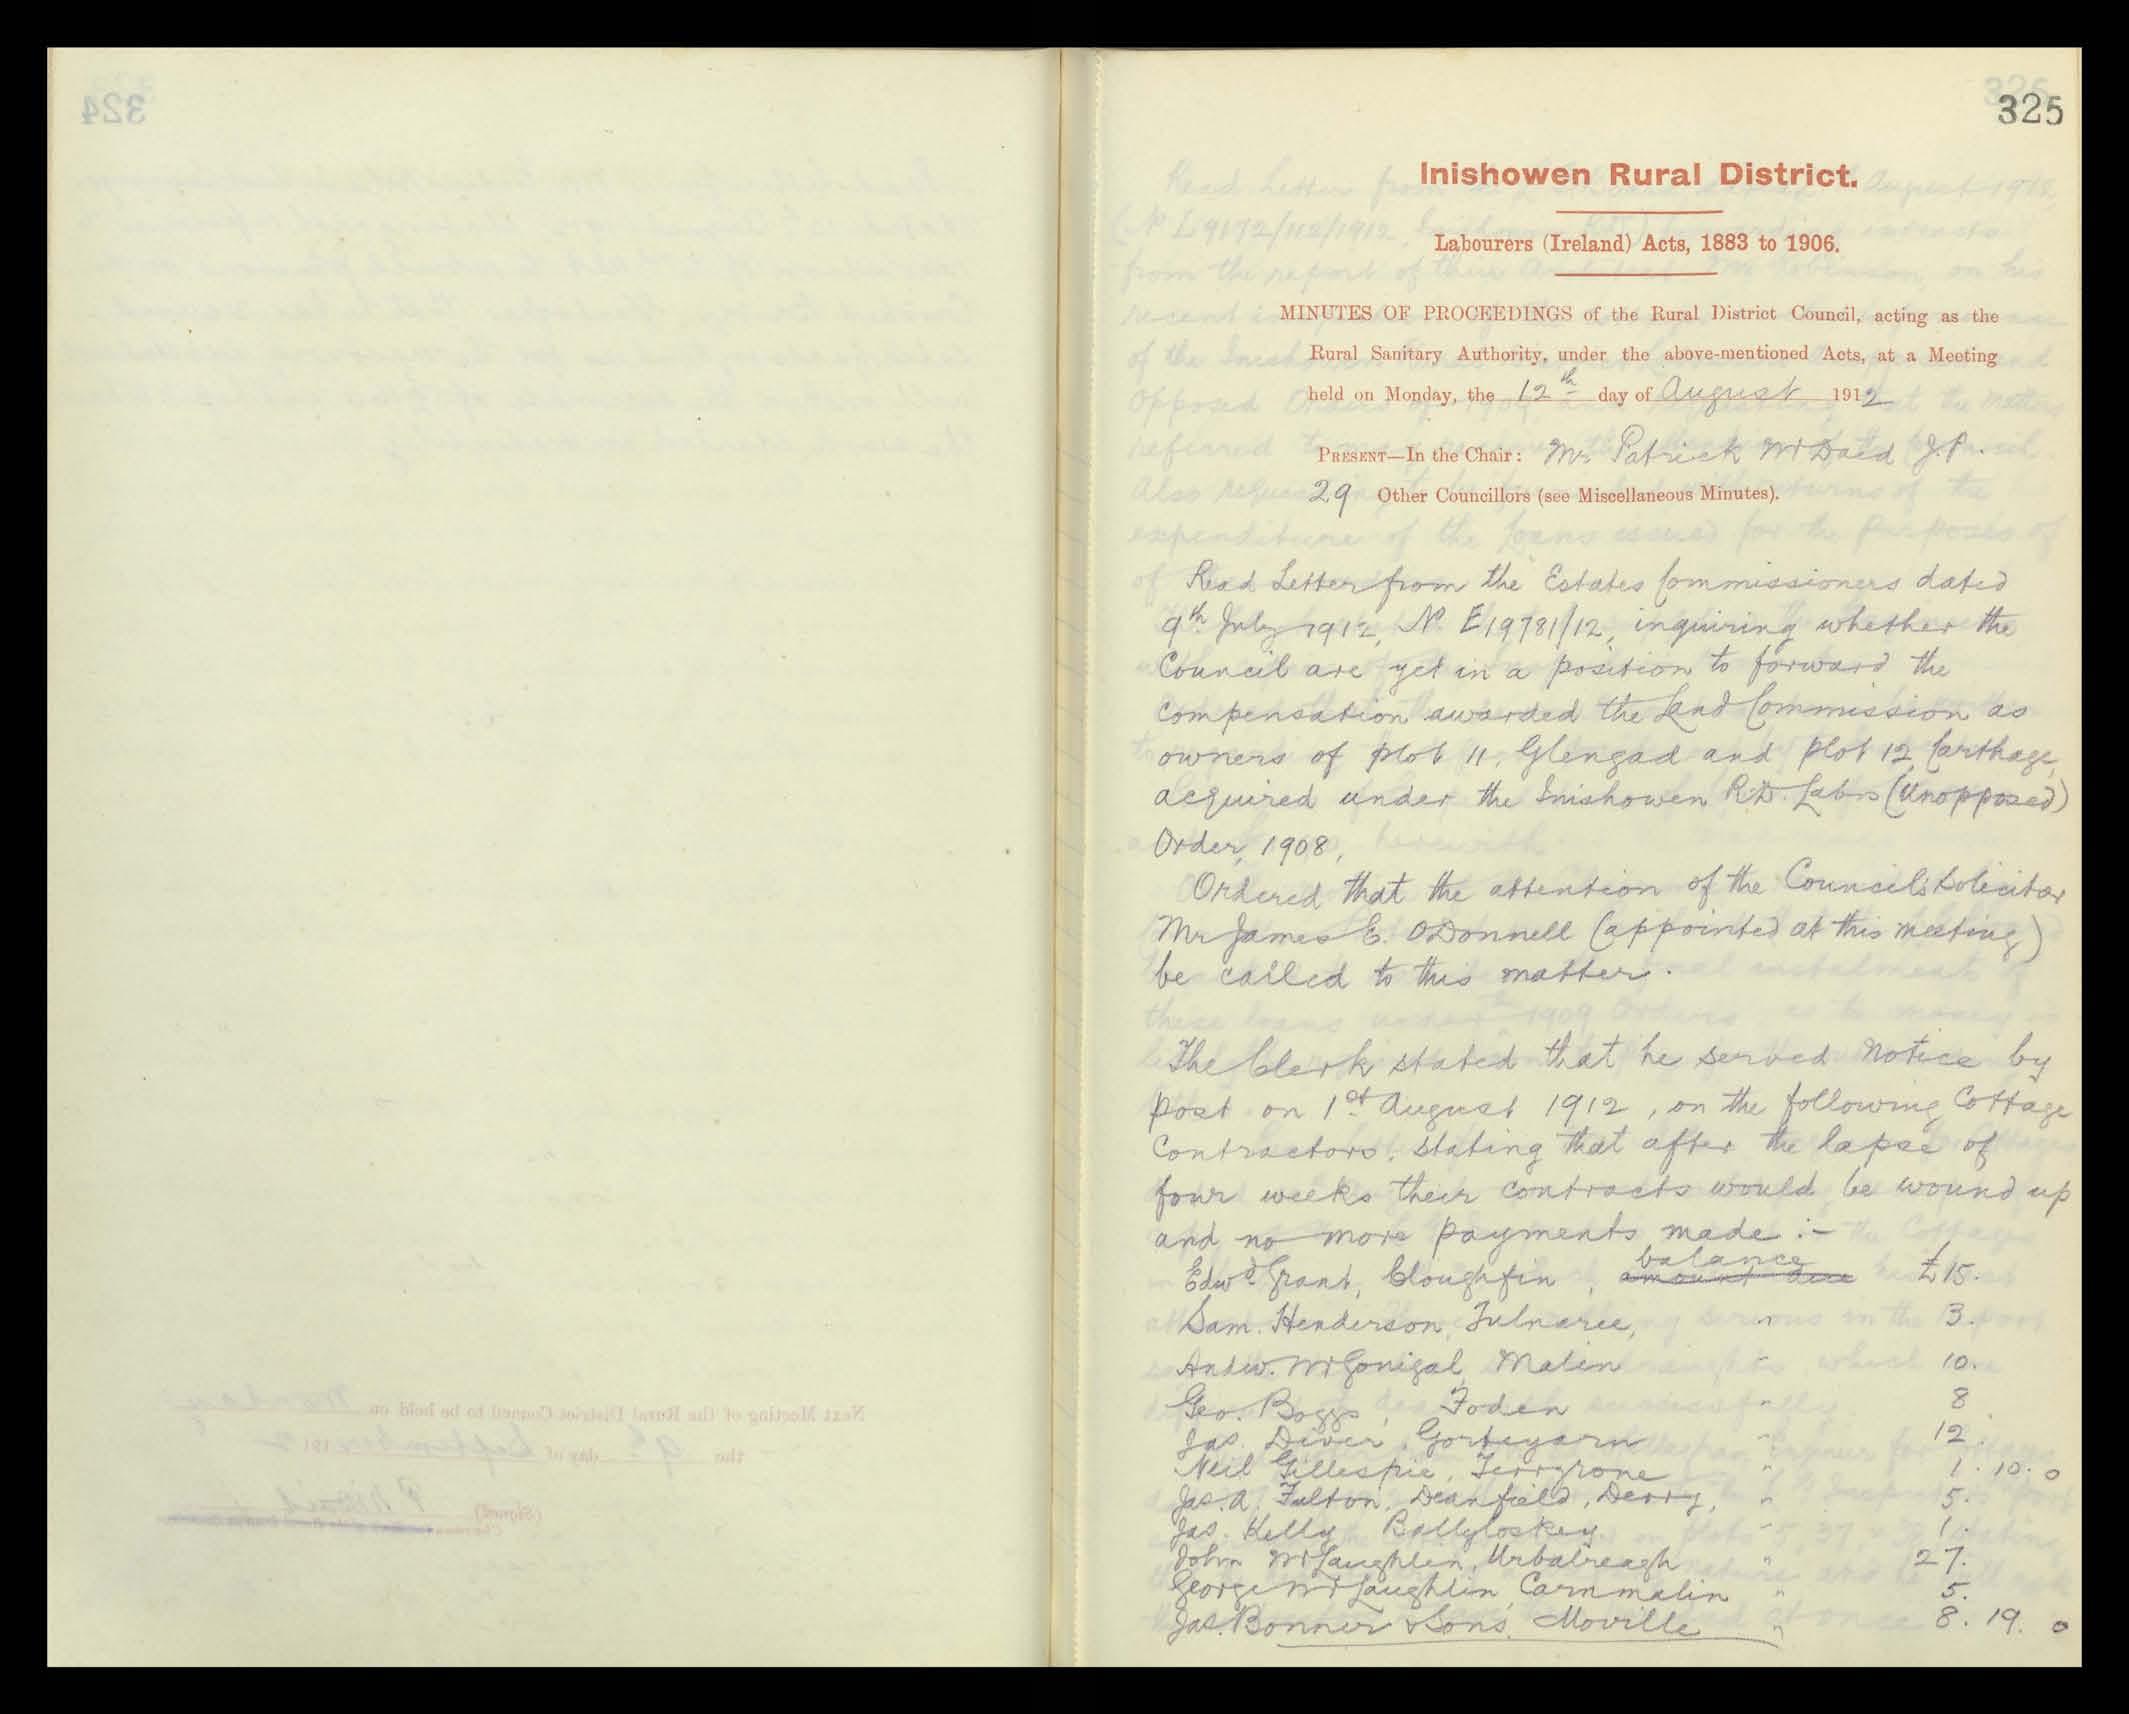 324
325
Inishowen Rural District.
Labourers (Ireland) Acts, 1883 to 1906.
MINUTES OF PROCEEDINGS of the Rural District Council, acting as the
Rural Sanitary Authority, under the above-mentioned Acts, at a Meeting
held on Monday, the 12th day of August 1912
PRESENT—In the Chair: Mr Patrick McDaid J.P.
29 Other Councillors (see Miscellaneous Minutes).
Read Letter from the Estates Commissioners dated
9th July 1912, No. E19781/12, inquiring whether the
Council are yet in a position to forward the
compensation awarded the Land Commission as
owners of plot 11, Glengad and plot 12 Carthage,
acquired under the Inishowen R.D. Labrs (Unopposed)
Order, 1908,
Ordered that the attention of the Council's Solicitor
Mr James E. ODonnell (appointed at this meeting)
be called to this matter.
The Clerk stated that he served notice by
post on 1st August 1912, on the following Cottage
Contractors, stating that after the lapse of
four weeks their contracts would be wound up
and no more payments made :-
Edwd. Grant, Cloughfin, amount due balance £15.
Sam. Henderson, Tulnaree, " 3.
Andw. McGonigal, Malin " 10.
Geo. Boggs, Foden " 8
Jas. Diver, Gorteyarn " 12.
Neil Gillespie, Terryrone " 1. 10. 0
Jas. A. Fulton, Deanfield, Derry, " 5.
Jas. Kelly Ballyloskey " 1.
John McLaughlin, Urbalreagh " 27.
George McLaughlin, Carnmalin " 5.
Jas. Bonner & Sons, Moville " 8. 19. 0